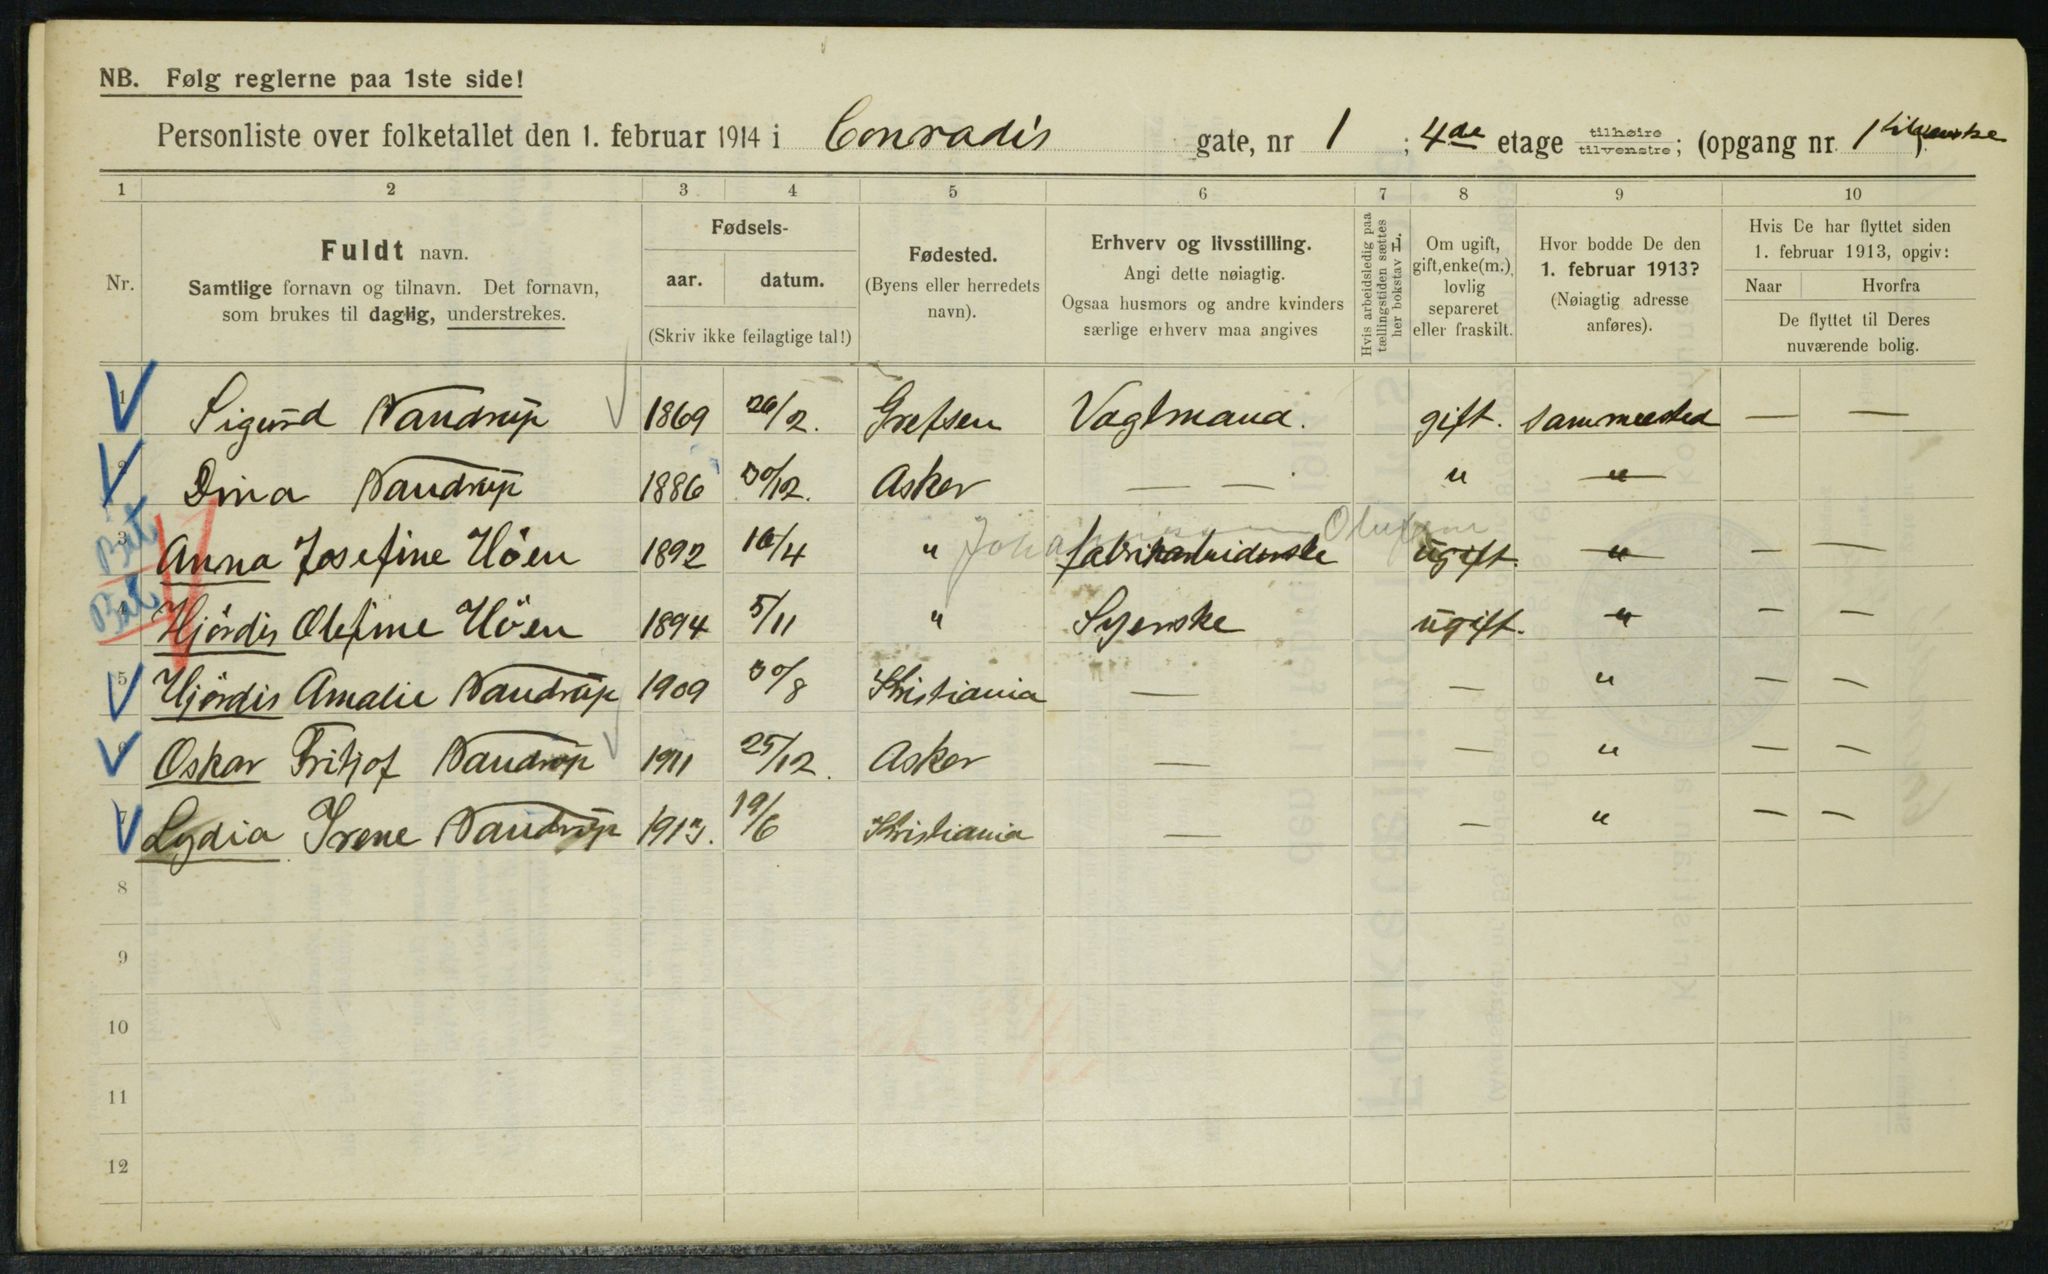 NB. Følg reglerne paa 1ste side!
Personliste over folketallet den 1. februar 1914 i Conradis gate, nr 1 ; 4de etage tilhøire tilvenstre; (opgang nr. 1 tilvenstre )
1 2 3 4 5 6 7 8 9 10
Nr.
Fuldt navn.
Samtlige fornavn og tilnavn. Det fornavn,
som brukes til daglig, understrekes.
Fødsels-
aar. datum.
(Skriv ikke feilagtige tal!)
Fødested.
(Byens eller herredets
navn).
Erhverv og livsstilling.
Angi dette nøiagtig.
Ogsaa husmors og andre kvinders
særlige erhverv maa angives
Hvis arbeidsledig paa
tællingstiden sættes
her bokstav L.
Om ugift,
gift, enke(m.),
lovlig
separeret
eller fraskilt.
Hvor bodde De den
1. februar 1913?
(Nøiagtig adresse
anføres).
Hvis De har flyttet siden
1. februar 1913, opgiv:
Naar Hvorfra
De flyttet til Deres
nuværende bolig.
1 Sigurd Nandrup 1869 26/2. Grefsen Vagtmand. gift. sammested — —
2 Dina Nandrup 1886 30/12. Asker — — " "
Johannessen Olufsen
Bet 3 Anna Josefine Höen 1892 16/4 " fabrikarbeiderske ugift. " — —
Bet 4 Hjördis Olefine Höen 1894 5/11 " Syerske ugift. " — —
5 Hjördis Amalie Nandrup 1909 30/8 Kristiania — — " — —
6 Oskar Fritjof Nandrup 1911 25/12. Asker — — " — —
7 Lydia Irene Nandrup 1913. 19/6 Kristiania — — " — —
8
9
10
11
12